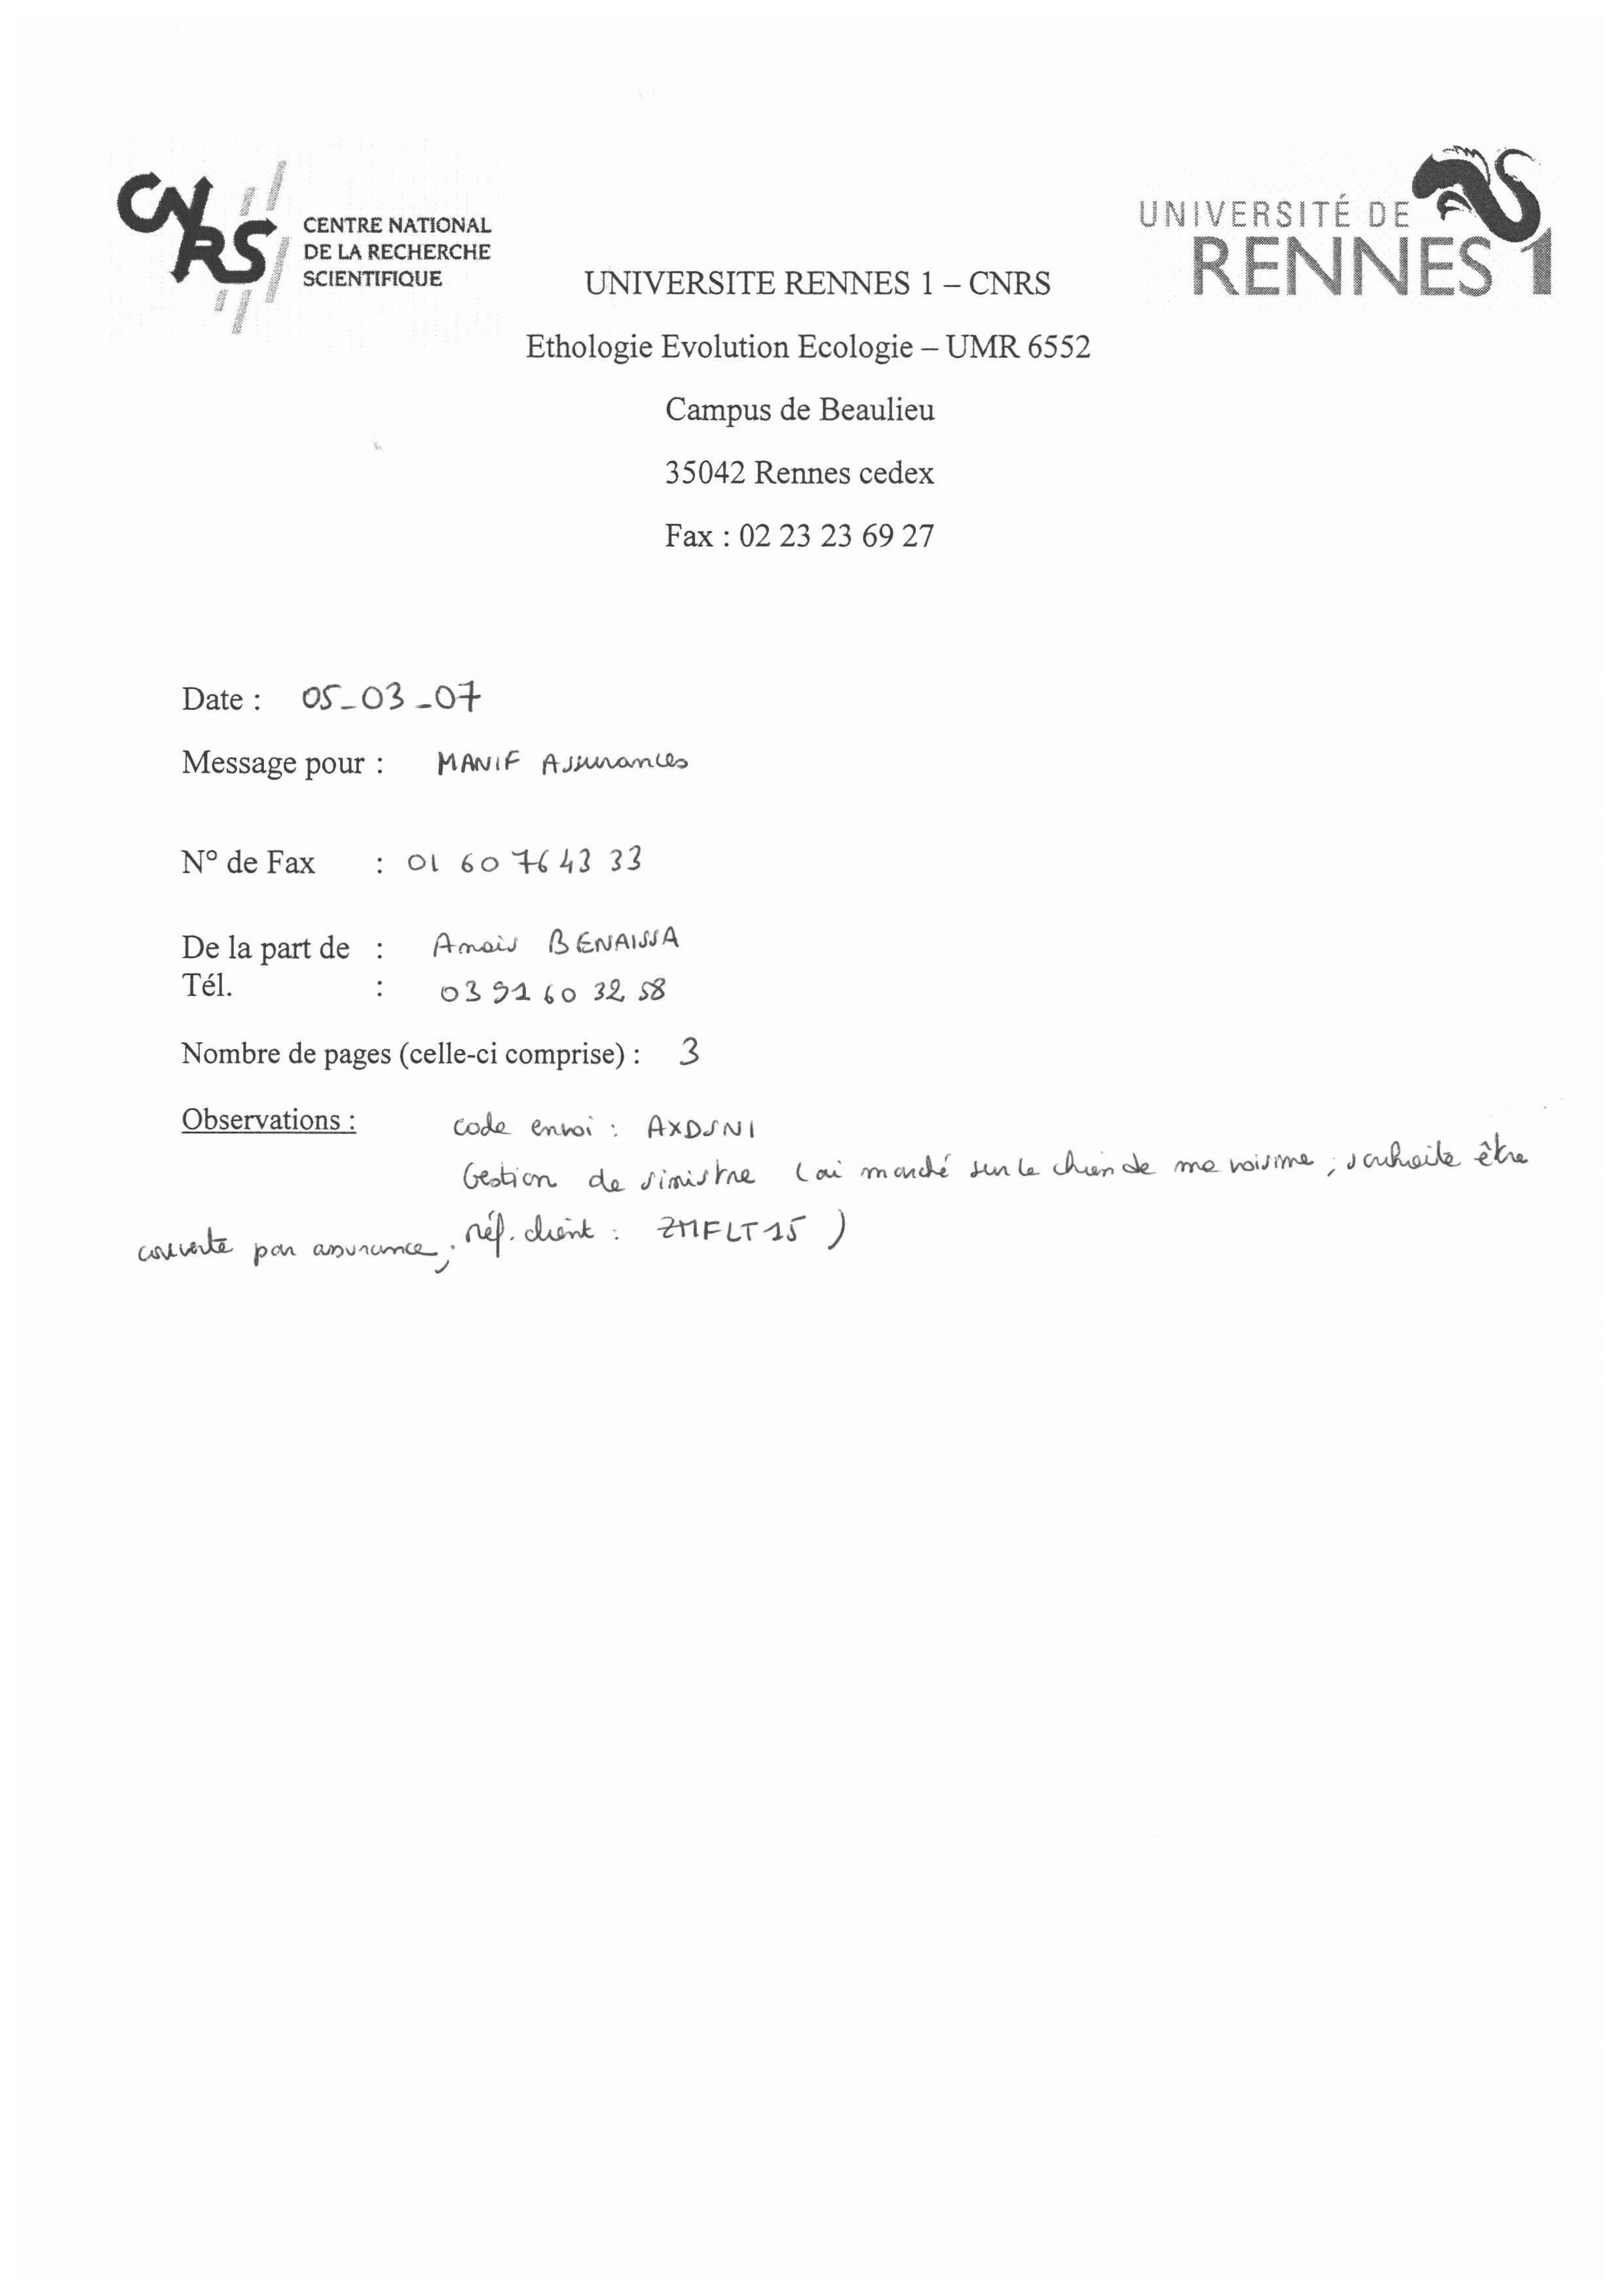 CNRS
CENTRE NATIONAL
DE LA RECHERCHE
SCIENTIFIQUE
UNIVERSITÉ DE
RENNES 1
UNIVERSITE RENNES 1 – CNRS
Ethologie Evolution Ecologie – UMR 6552
Campus de Beaulieu
35042 Rennes cedex
Fax : 02 23 23 69 27
Date : 05-03-07
Message pour : MANIF Assurances
N° de Fax : 01 60 76 43 33
De la part de : Anais BENAISSA
Tél. : 03 91 60 32 58
Nombre de pages (celle-ci comprise) : 3
Observations : code envoi : AXDSNI
Gestion de sinistre (ai marché sur le chien de ma voisine ; souhaite être
couverte par assurance ; réf. client : ZMFLT15 )